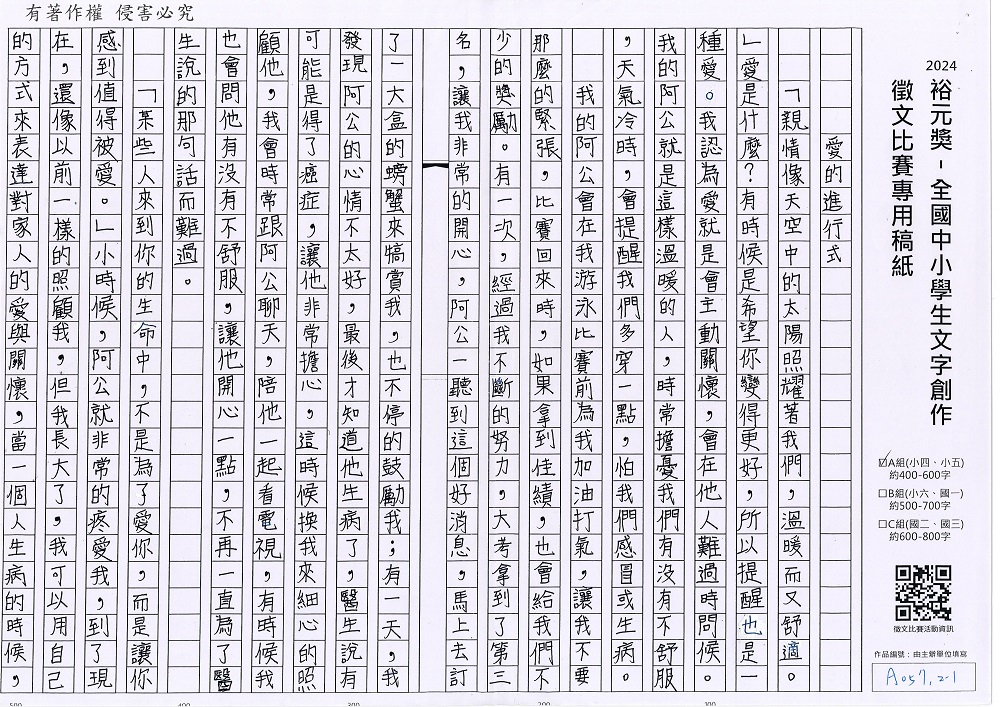 有著作權 侵害必究
2024
裕元獎-全國中小學生文字創作
徵文比賽專用稿紙
☑A組(小四、小五)
約400-600字
□B組(小六、國一)
約500-700字
□C組(國二、國三)
約600-800字
徵文比賽活動資訊
作品編號：由主辦單位填寫
A057,2-1
愛的進行式
「親情像天空中的太陽照耀著我們，溫暖而又舒適。
」愛是什麼？有時候是希望你變得更好，所以提醒也是一
種愛。我認為愛就是會主動關懷，會在他人難過時問候。
我的阿公就是這樣溫暖的人，時常擔憂我們有沒有不舒服
，天氣冷時，會提醒我們多穿一點，怕我們感冒或生病。
我的阿公會在我游泳比賽前為我加油打氣，讓我不要
那麼的緊張，比賽回來時，如果拿到佳績，也會給我們不
少的獎勵。有一次，經過我不斷的努力，大考拿到了第三
名，讓我非常的開心，阿公一聽到這個好消息，馬上去訂
了一大盒的螃蟹來犒賞我，也不停的鼓勵我；有一天，我
發現阿公的心情不太好，最後才知道他生病了，醫生說有
可能是得了癌症，讓他非常擔心，這時候換我來細心的照
顧他，我會時常跟阿公聊天，陪他一起看電視，有時候我
也會問他有沒有不舒服，讓他開心一點，不再一直為了醫
生說的那句話而難過。
「某些人來到你的生命中，不是為了愛你，而是讓你
感到值得被愛。」小時候，阿公就非常的疼愛我，到了現
在，還像以前一樣的照顧我，但我長大了，我可以用自己
的方式來表達對家人的愛與關懷，當一個人生病的時候，